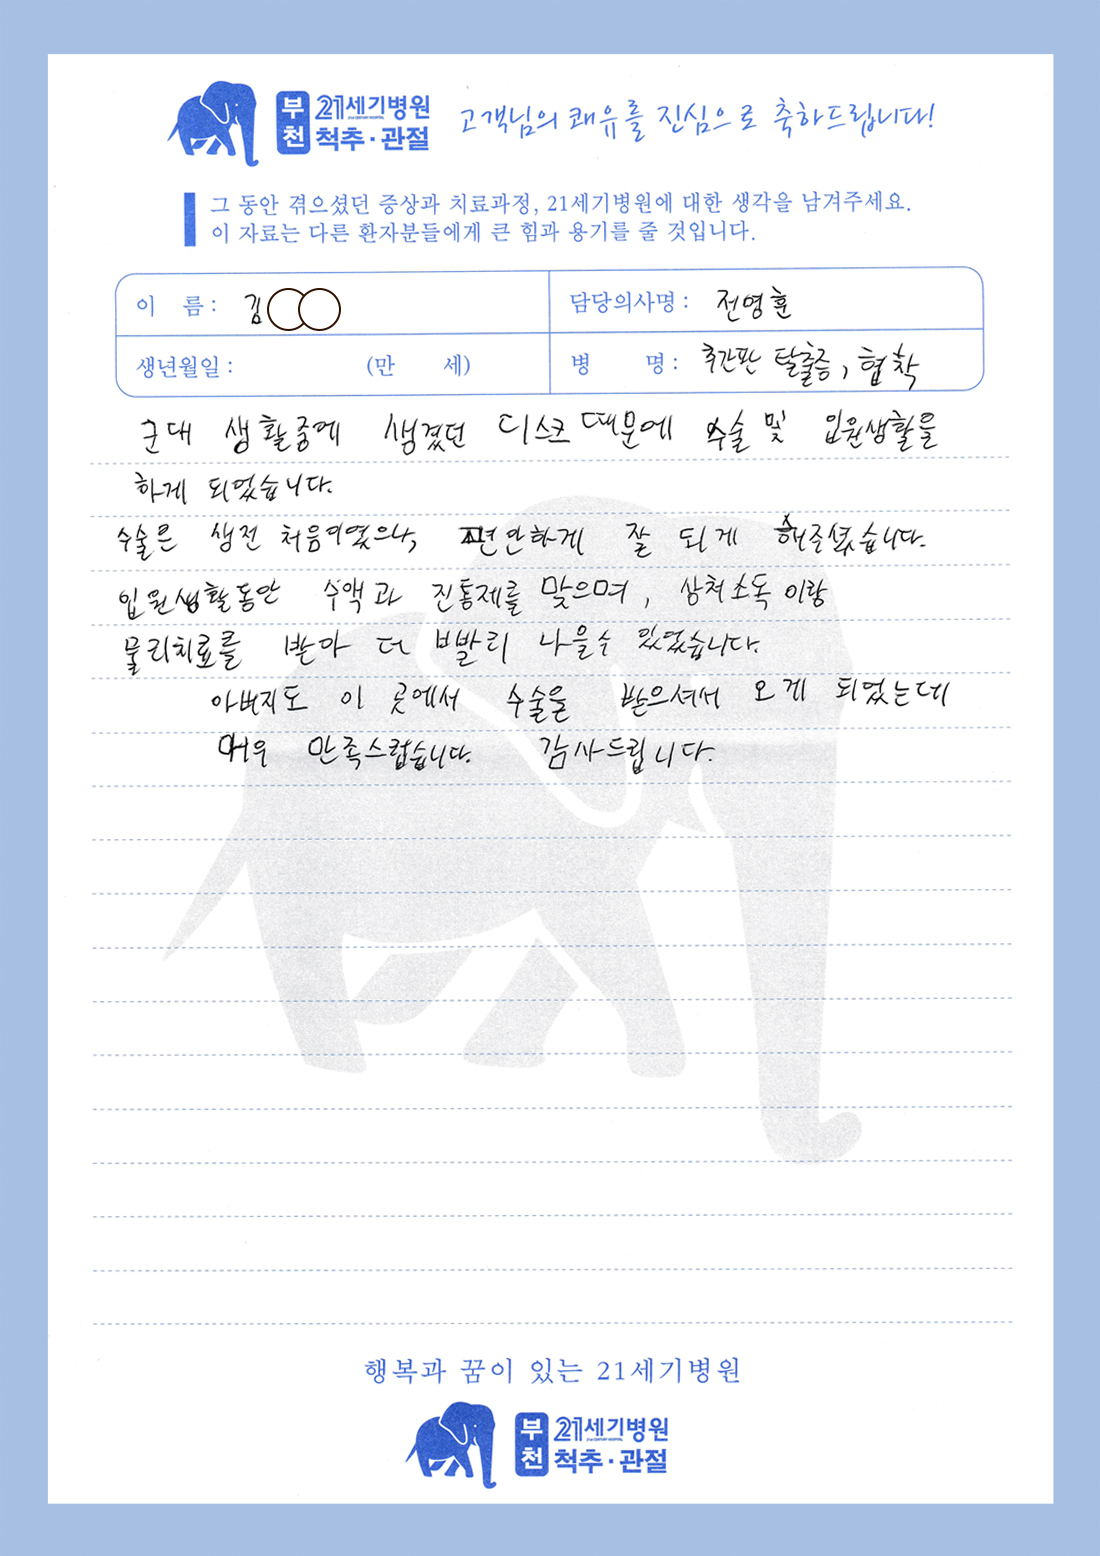 부천 21세기병원 척추·관절 고객님의 쾌유를 진심으로 축하드립니다!
그 동안 겪으셨던 증상과 치료과정, 21세기병원에 대한 생각을 남겨주세요.
이 자료는 다른 환자분들에게 큰 힘과 용기를 줄 것입니다.
이 름 : 김○○ 담당의사명 : 전영훈
생년월일 : (만 세) 병 명 : 추간판 탈출증, 협착
군대 생활중에 생겼던 디스크 때문에 수술 및 입원생활을
하게 되었습니다.
수술은 생전 처음이였으나, 편안하게 잘 되게 해주셨습니다.
입원생활동안 수액과 진통제를 맞으며, 상처소독이랑
물리치료를 받아 더 빨리 나을수 있었습니다.
아버지도 이 곳에서 수술을 받으셔서 오게 되었는데
매우 만족스럽습니다. 감사드립니다.
행복과 꿈이 있는 21세기병원
부천 21세기병원 척추·관절